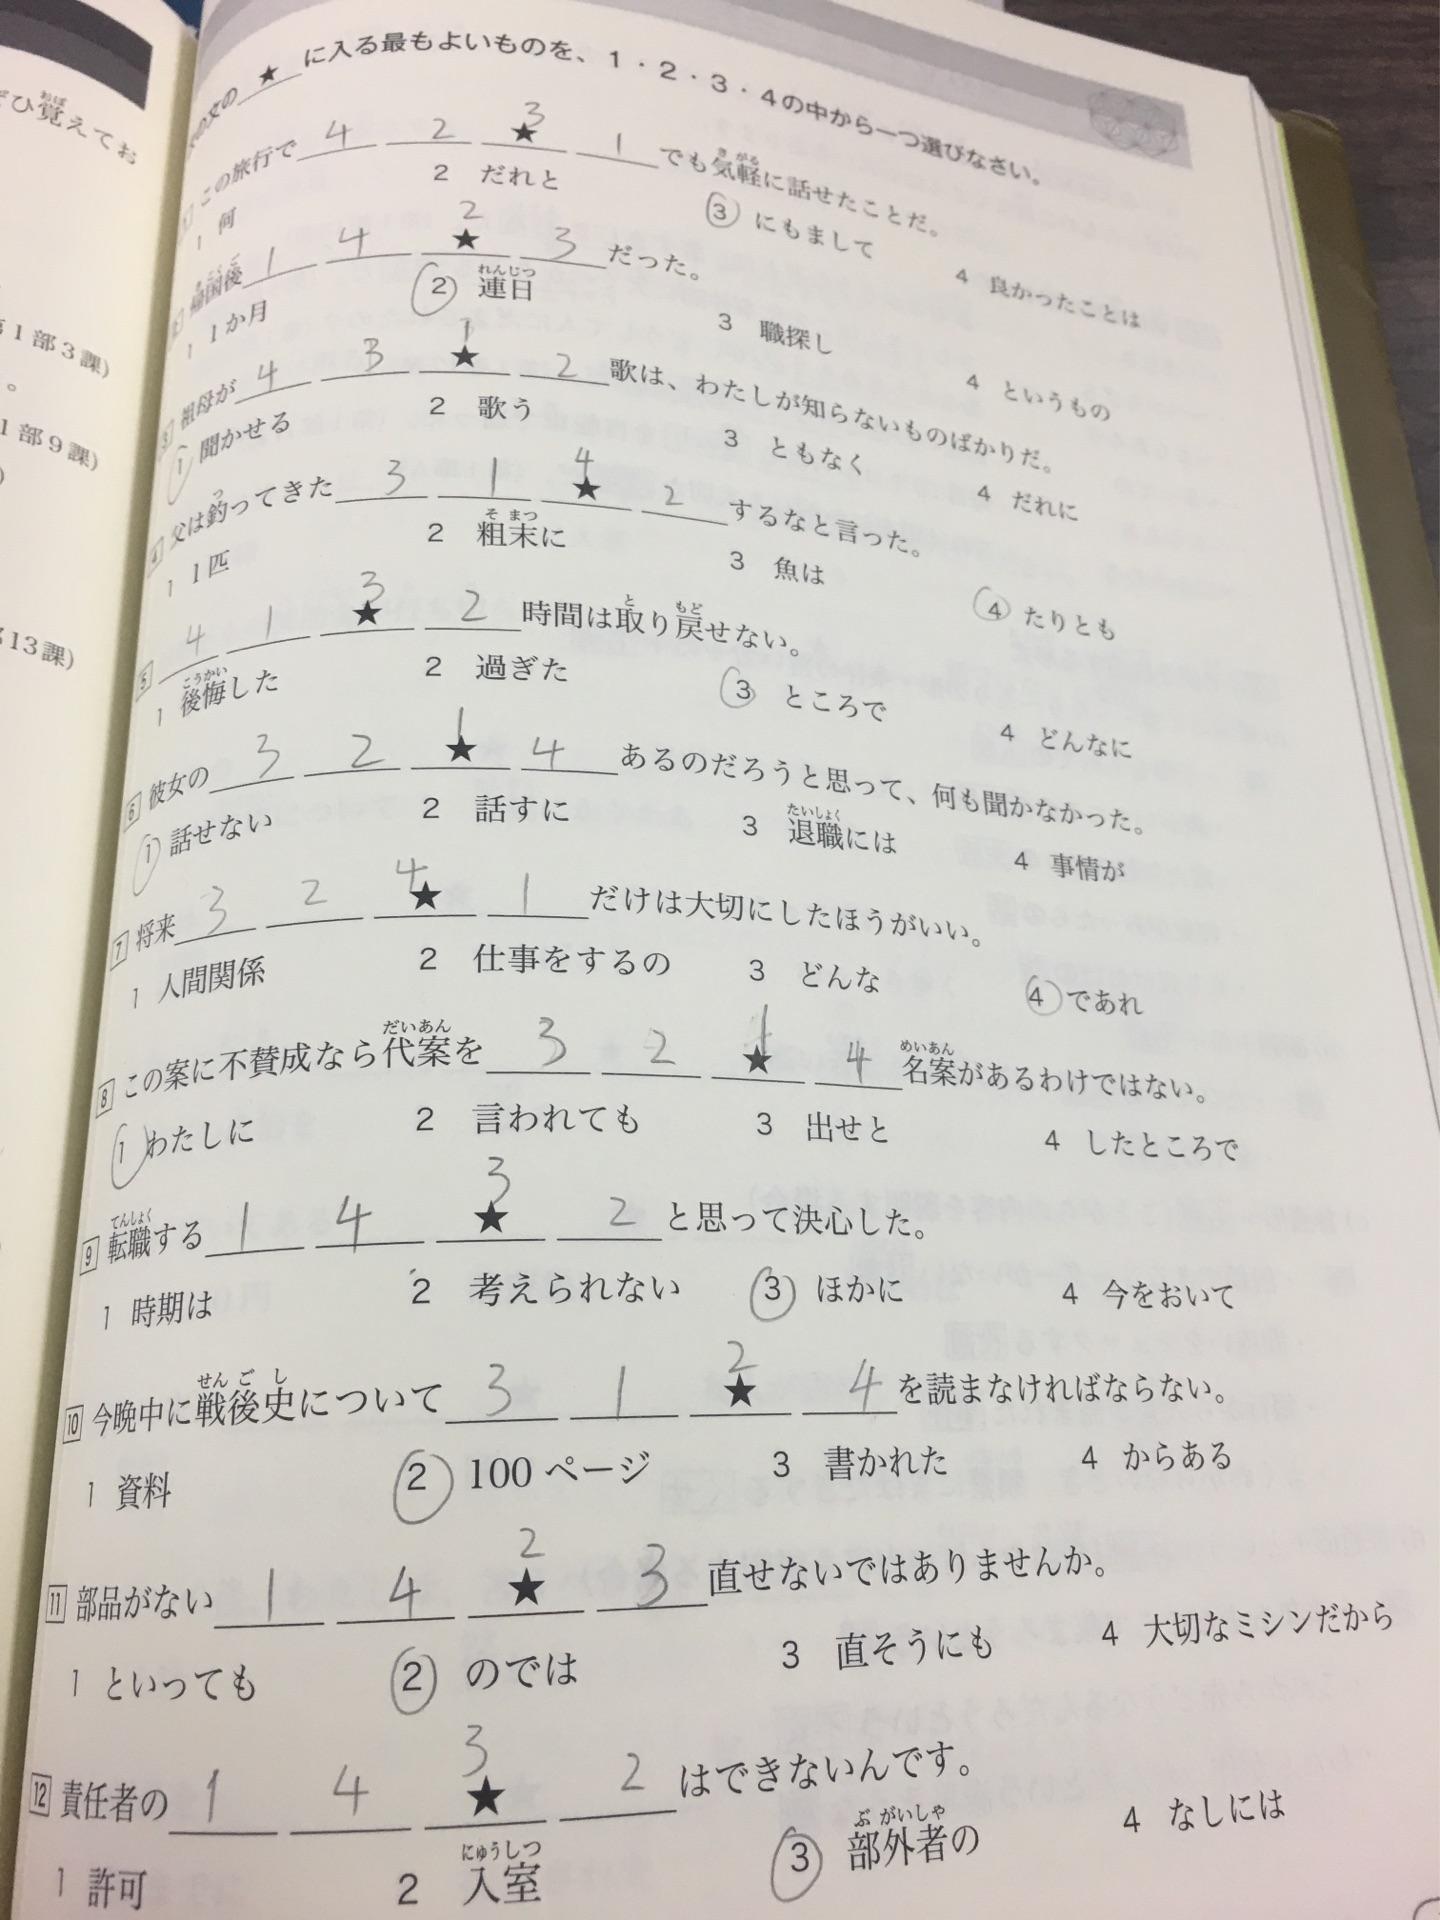 ぜひ覚えてお
第1部3課)
。
1部9課)
)
13課)
の文の ★ に入る最もよいものを、1・2・3・4の中から一つ選びなさい。
1 この旅行で 4 2 ★3 1 でも気軽に話せたことだ。
1 何 2 だれと 3 にもまして 4 良かったことは
2 帰国後 1 4 ★2 3 だった。
1 1か月 2 連日 3 職探し 4 というもの
3 祖母が 4 3 ★1 2 歌は、わたしが知らないものばかりだ。
1 聞かせる 2 歌う 3 ともなく 4 だれに
4 父は釣ってきた 3 1 ★4 2 するなと言った。
1 1匹 2 粗末に 3 魚は 4 たりとも
5 4 1 ★3 2 時間は取り戻せない。
1 後悔した 2 過ぎた 3 ところで 4 どんなに
6 彼女の 3 2 ★1 4 あるのだろうと思って、何も聞かなかった。
1 話せない 2 話すに 3 退職には 4 事情が
7 将来 3 2 ★4 1 だけは大切にしたほうがいい。
1 人間関係 2 仕事をするの 3 どんな 4 であれ
8 この案に不賛成なら代案を 3 2 ★1 4 名案があるわけではない。
1 わたしに 2 言われても 3 出せと 4 したところで
9 転職する 1 4 ★3 2 と思って決心した。
1 時期は 2 考えられない 3 ほかに 4 今をおいて
10 今晩中に戦後史について 3 1 ★2 4 を読まなければならない。
1 資料 2 100ページ 3 書かれた 4 からある
11 部品がない 1 4 ★2 3 直せないではありませんか。
1 といっても 2 のでは 3 直そうにも 4 大切なミシンだから
12 責任者の 1 4 ★3 2 はできないんです。
1 許可 2 入室 3 部外者の 4 なしには